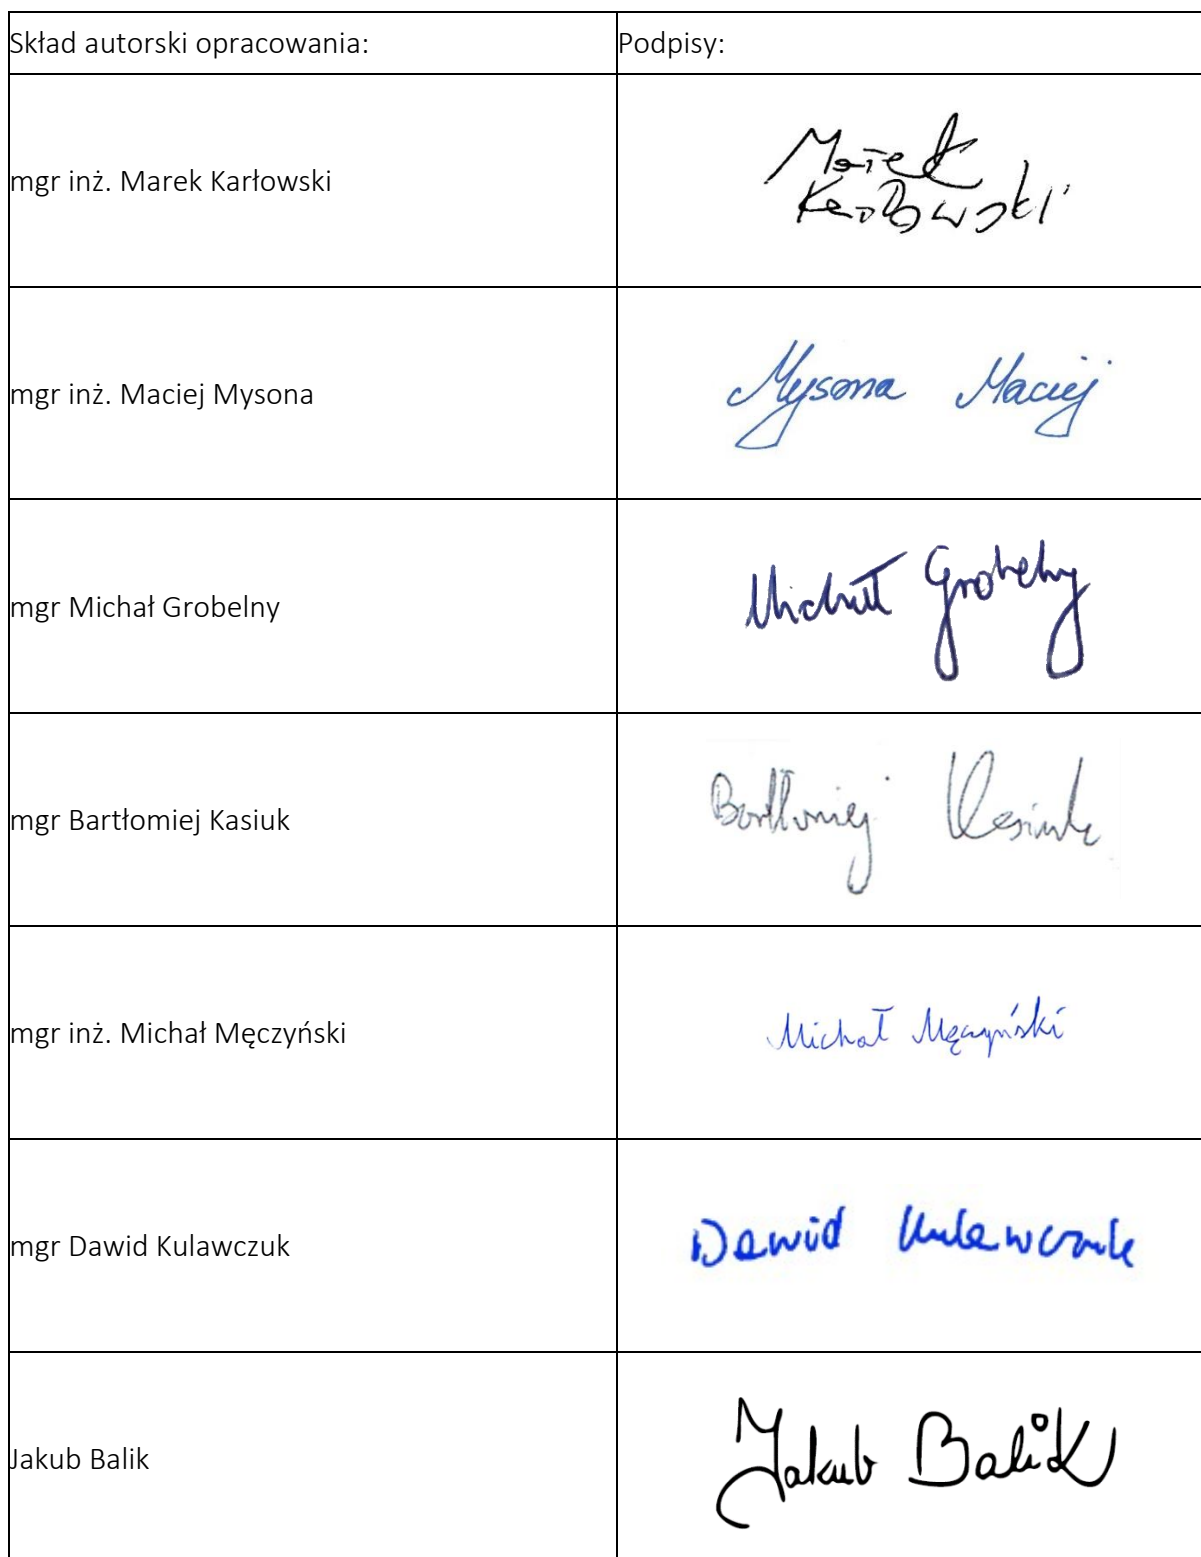 Skład autorski opracowania: Podpisy:
mgr inż. Marek Karłowski
Marek
Karłowski
mgr inż. Maciej Mysona
Mysona Maciej
mgr Michał Grobelny
Michał Grobelny
mgr Bartłomiej Kasiuk
Bartłomiej Kasiuk
mgr inż. Michał Męczyński
Michał Męczyński
mgr Dawid Kulawczuk
Dawid Kulawczuk
Jakub Balik
Jakub Balik